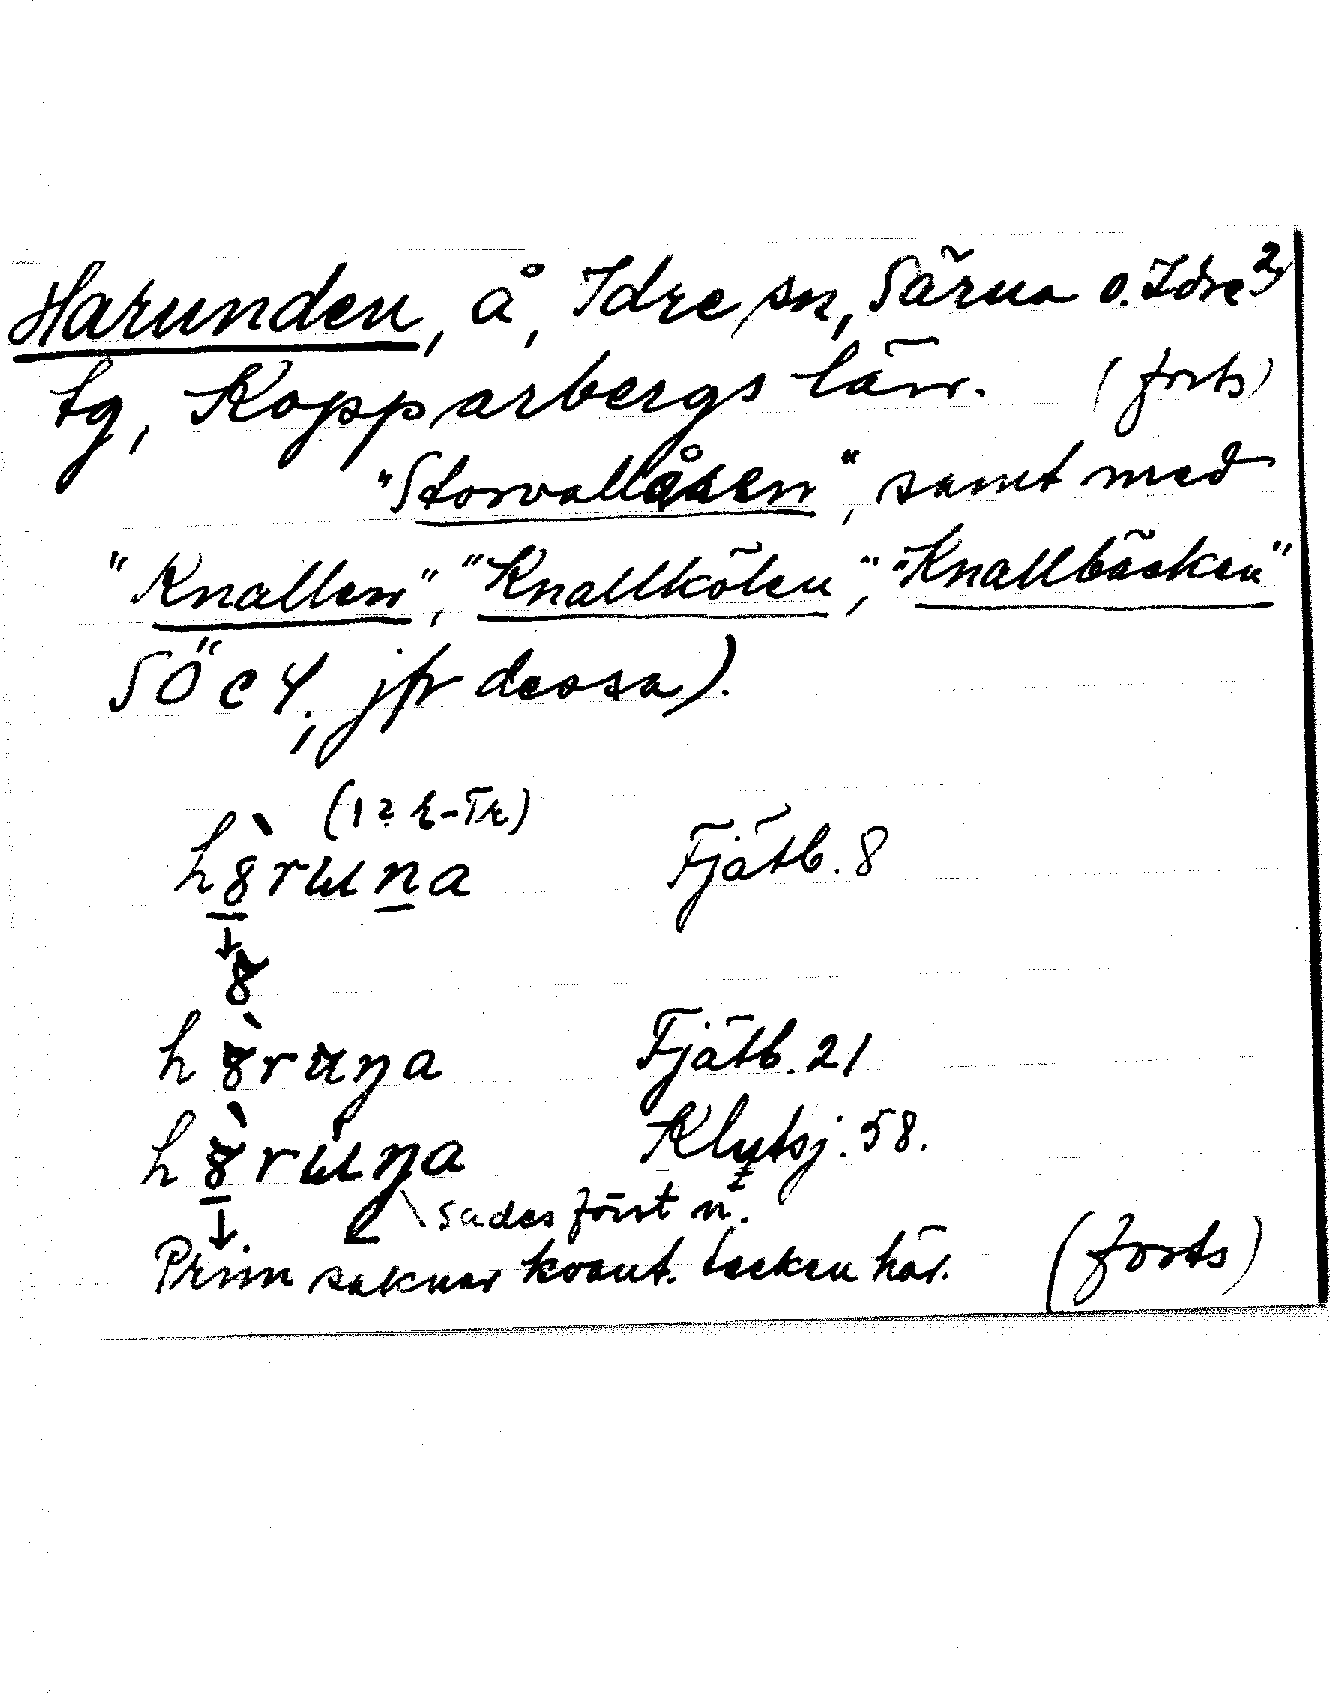 Harunden, å, Idre sn, Särna o. Idre 2
tg, Kopparbergs län. (forts)
"Storvallåsen", samt med
"Knallen", "Knallkölen", "Knallbäcken"
SÖ c 4, jfr dessa).
Fjätb. 8
Fjätb. 21
Klutsj. 58.
sades först n.
Prim saknar kvant. tecken här. (forts)